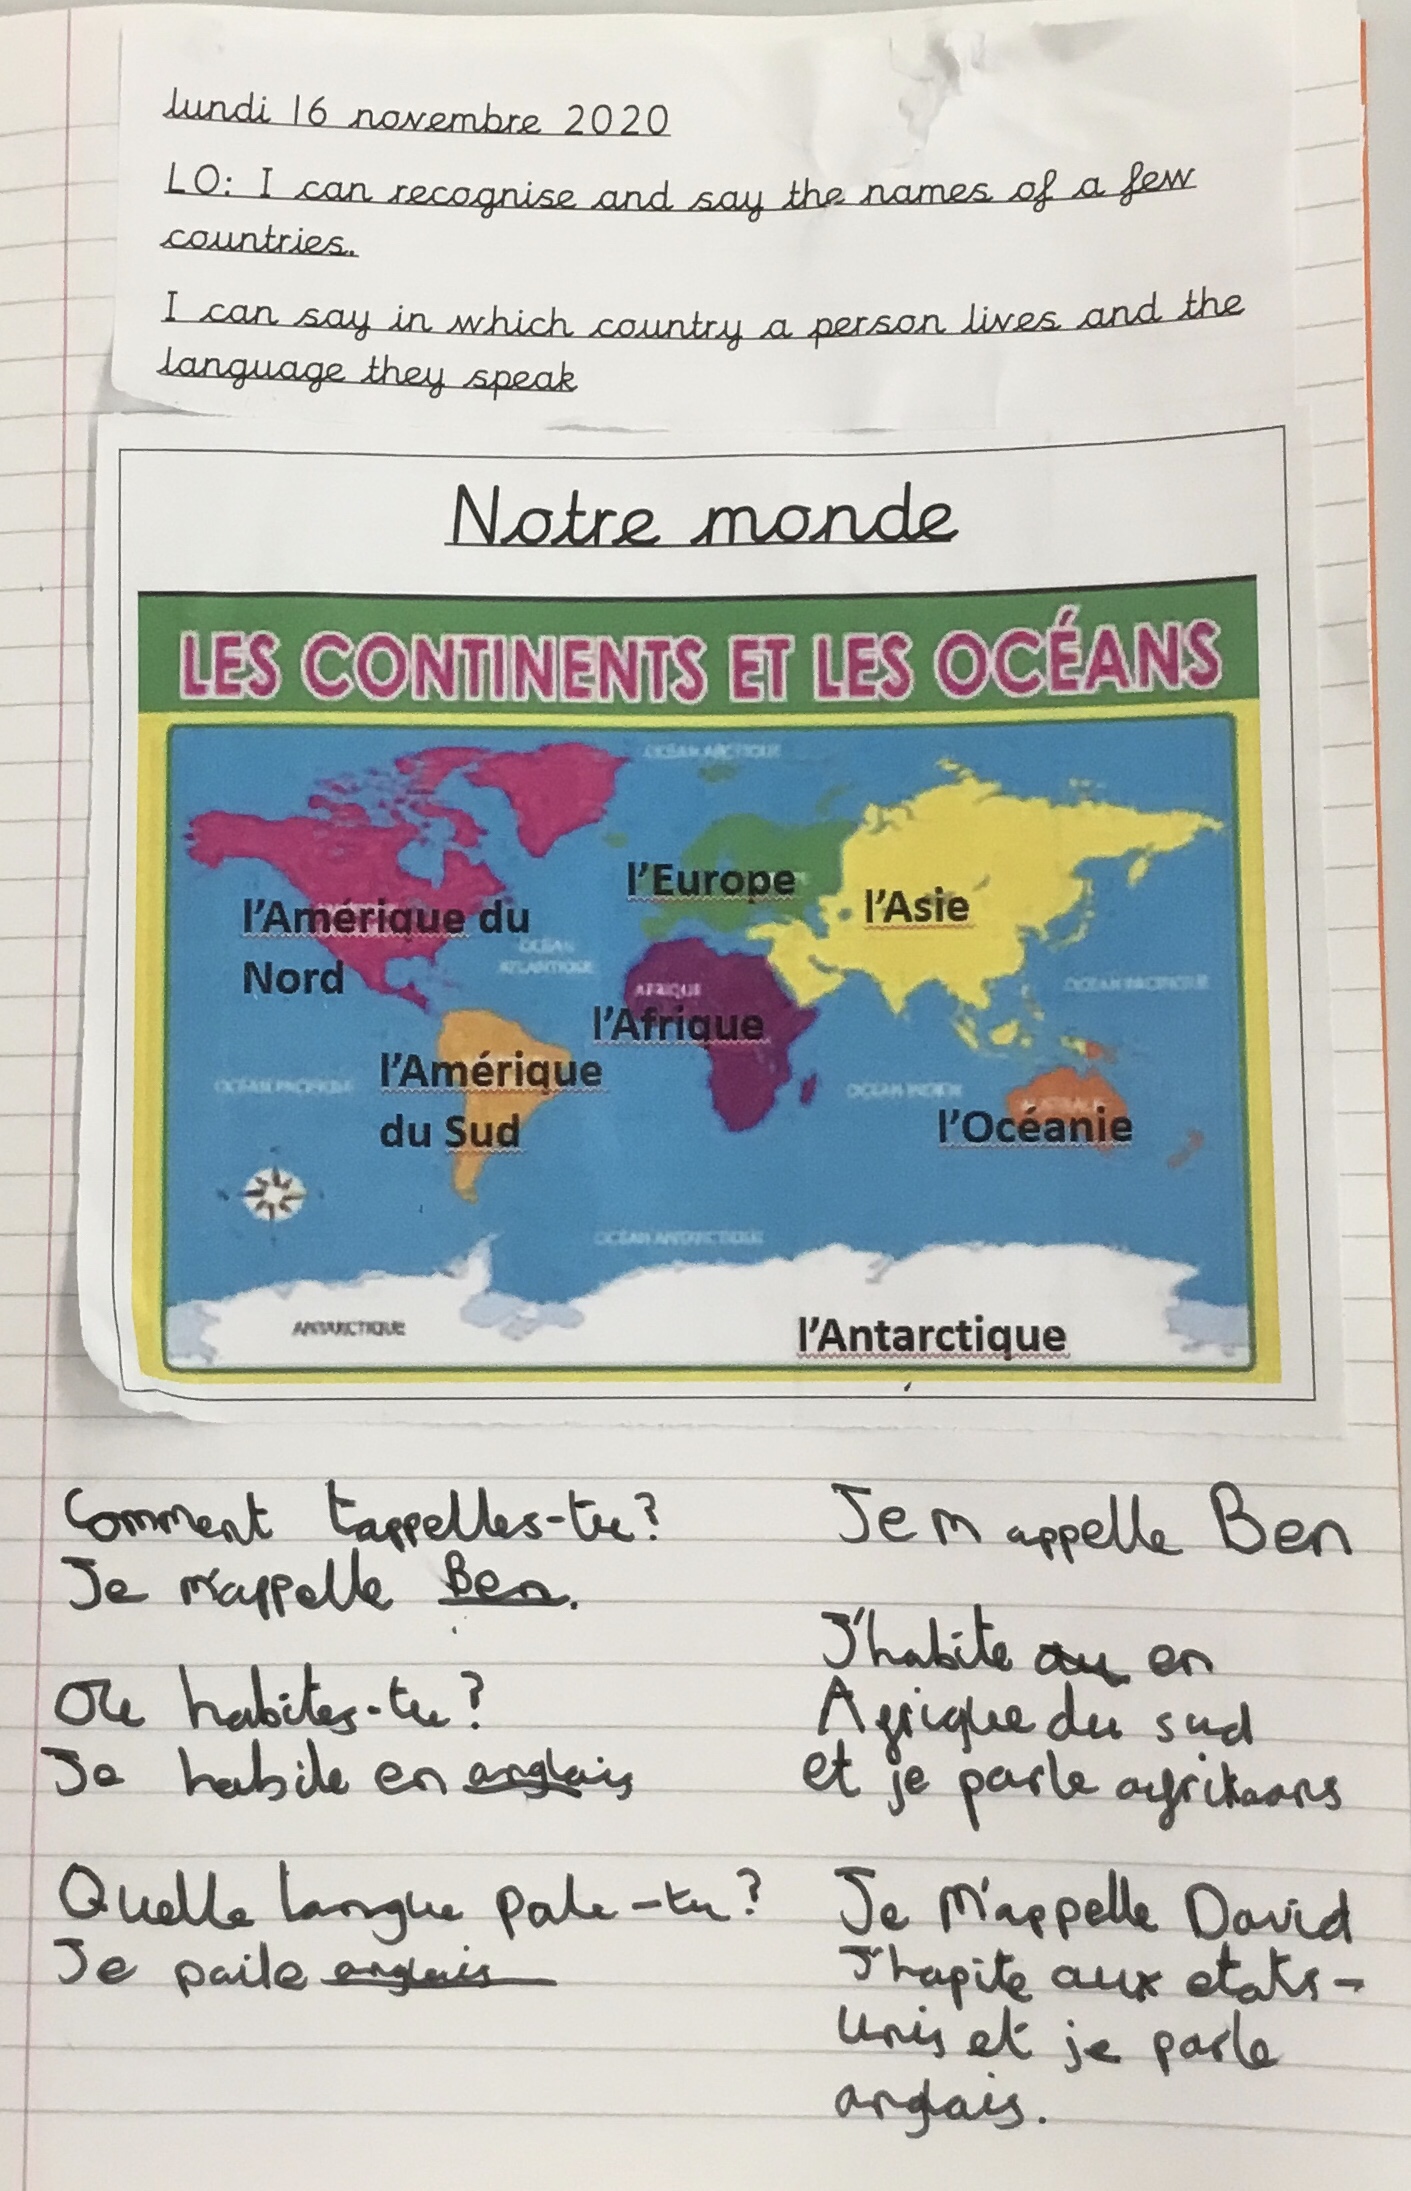 lundi 16 novembre 2020
LO: I can recognise and say the names of a few
countries.
I can say in which country a person lives and the
language they speak
Notre monde
LES CONTINENTS ET LES OCÉANS
OCÉAN ARCTIQUE
l'Europe
l'Asie
l'Amérique du
Nord
OCÉAN
ATLANTIQUE
AFRIQUE
OCÉAN PACIFIQUE
l'Afrique
l'Amérique
du Sud
OCÉAN PACIFIQUE
OCÉAN INDIEN
AUSTRALIE
l'Océanie
OCÉAN ANTARCTIQUE
ANTARCTIQUE
l'Antarctique
Comment t'appelles-tu?
Je m'appelle Ben.
Où habites-tu?
Je habite en anglais
Quelle langue pale-tu?
Je paile anglais
Je m appelle Ben
J'habite au en
Afrique du sud
et je parle afrikaans
Je M'appelle David
J'hapite aux etats-
Unis et je parle
anglais.